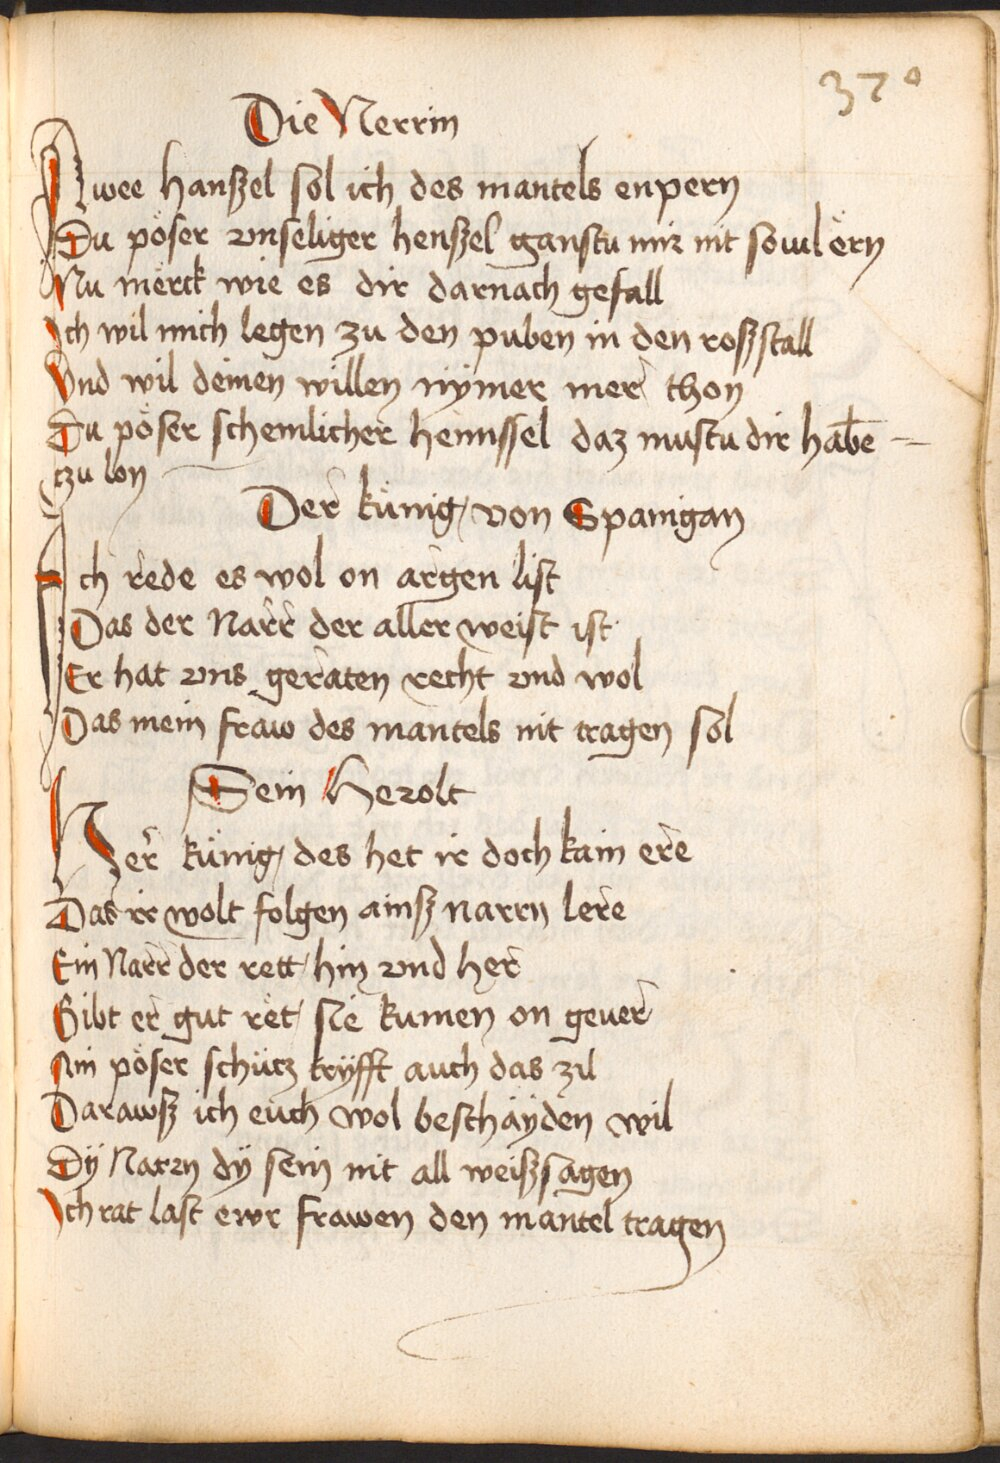 370
Die Nerrin
Awee hanßel sol ich des mantels enpern
Du pöser vnseliger henßel ganstu mir nit souil ern
Nu merck wie es dir darnach gefall
Ich wil mich legen zu den puben in den roßstall
Vnd wil deinen willen nÿmer mer thon
Du pöser schemlicher hennssel daz mustu dir habē
tzu lon
Der künig von Spanigan
Ich rede es wol on argen list
Das der Narr der aller weist ist
Er hat vns geraten recht vnd wol
Das mein fraw des mantels nit tragen sol
Sein Herolt
Her künig des het ir doch kain ere
Das ir wolt folgen ainß narrn lere
Ein Narr der rett hin vnd her
Gibt er gut ret sie kumen on geuer
Ain pöser schütz tryfft auch das zil
Darawß ich euch wol beschäyden wil
Dÿ Narrn dÿ sein nit all weißsagen
Ich rat last ewr frawen den mantel tragen